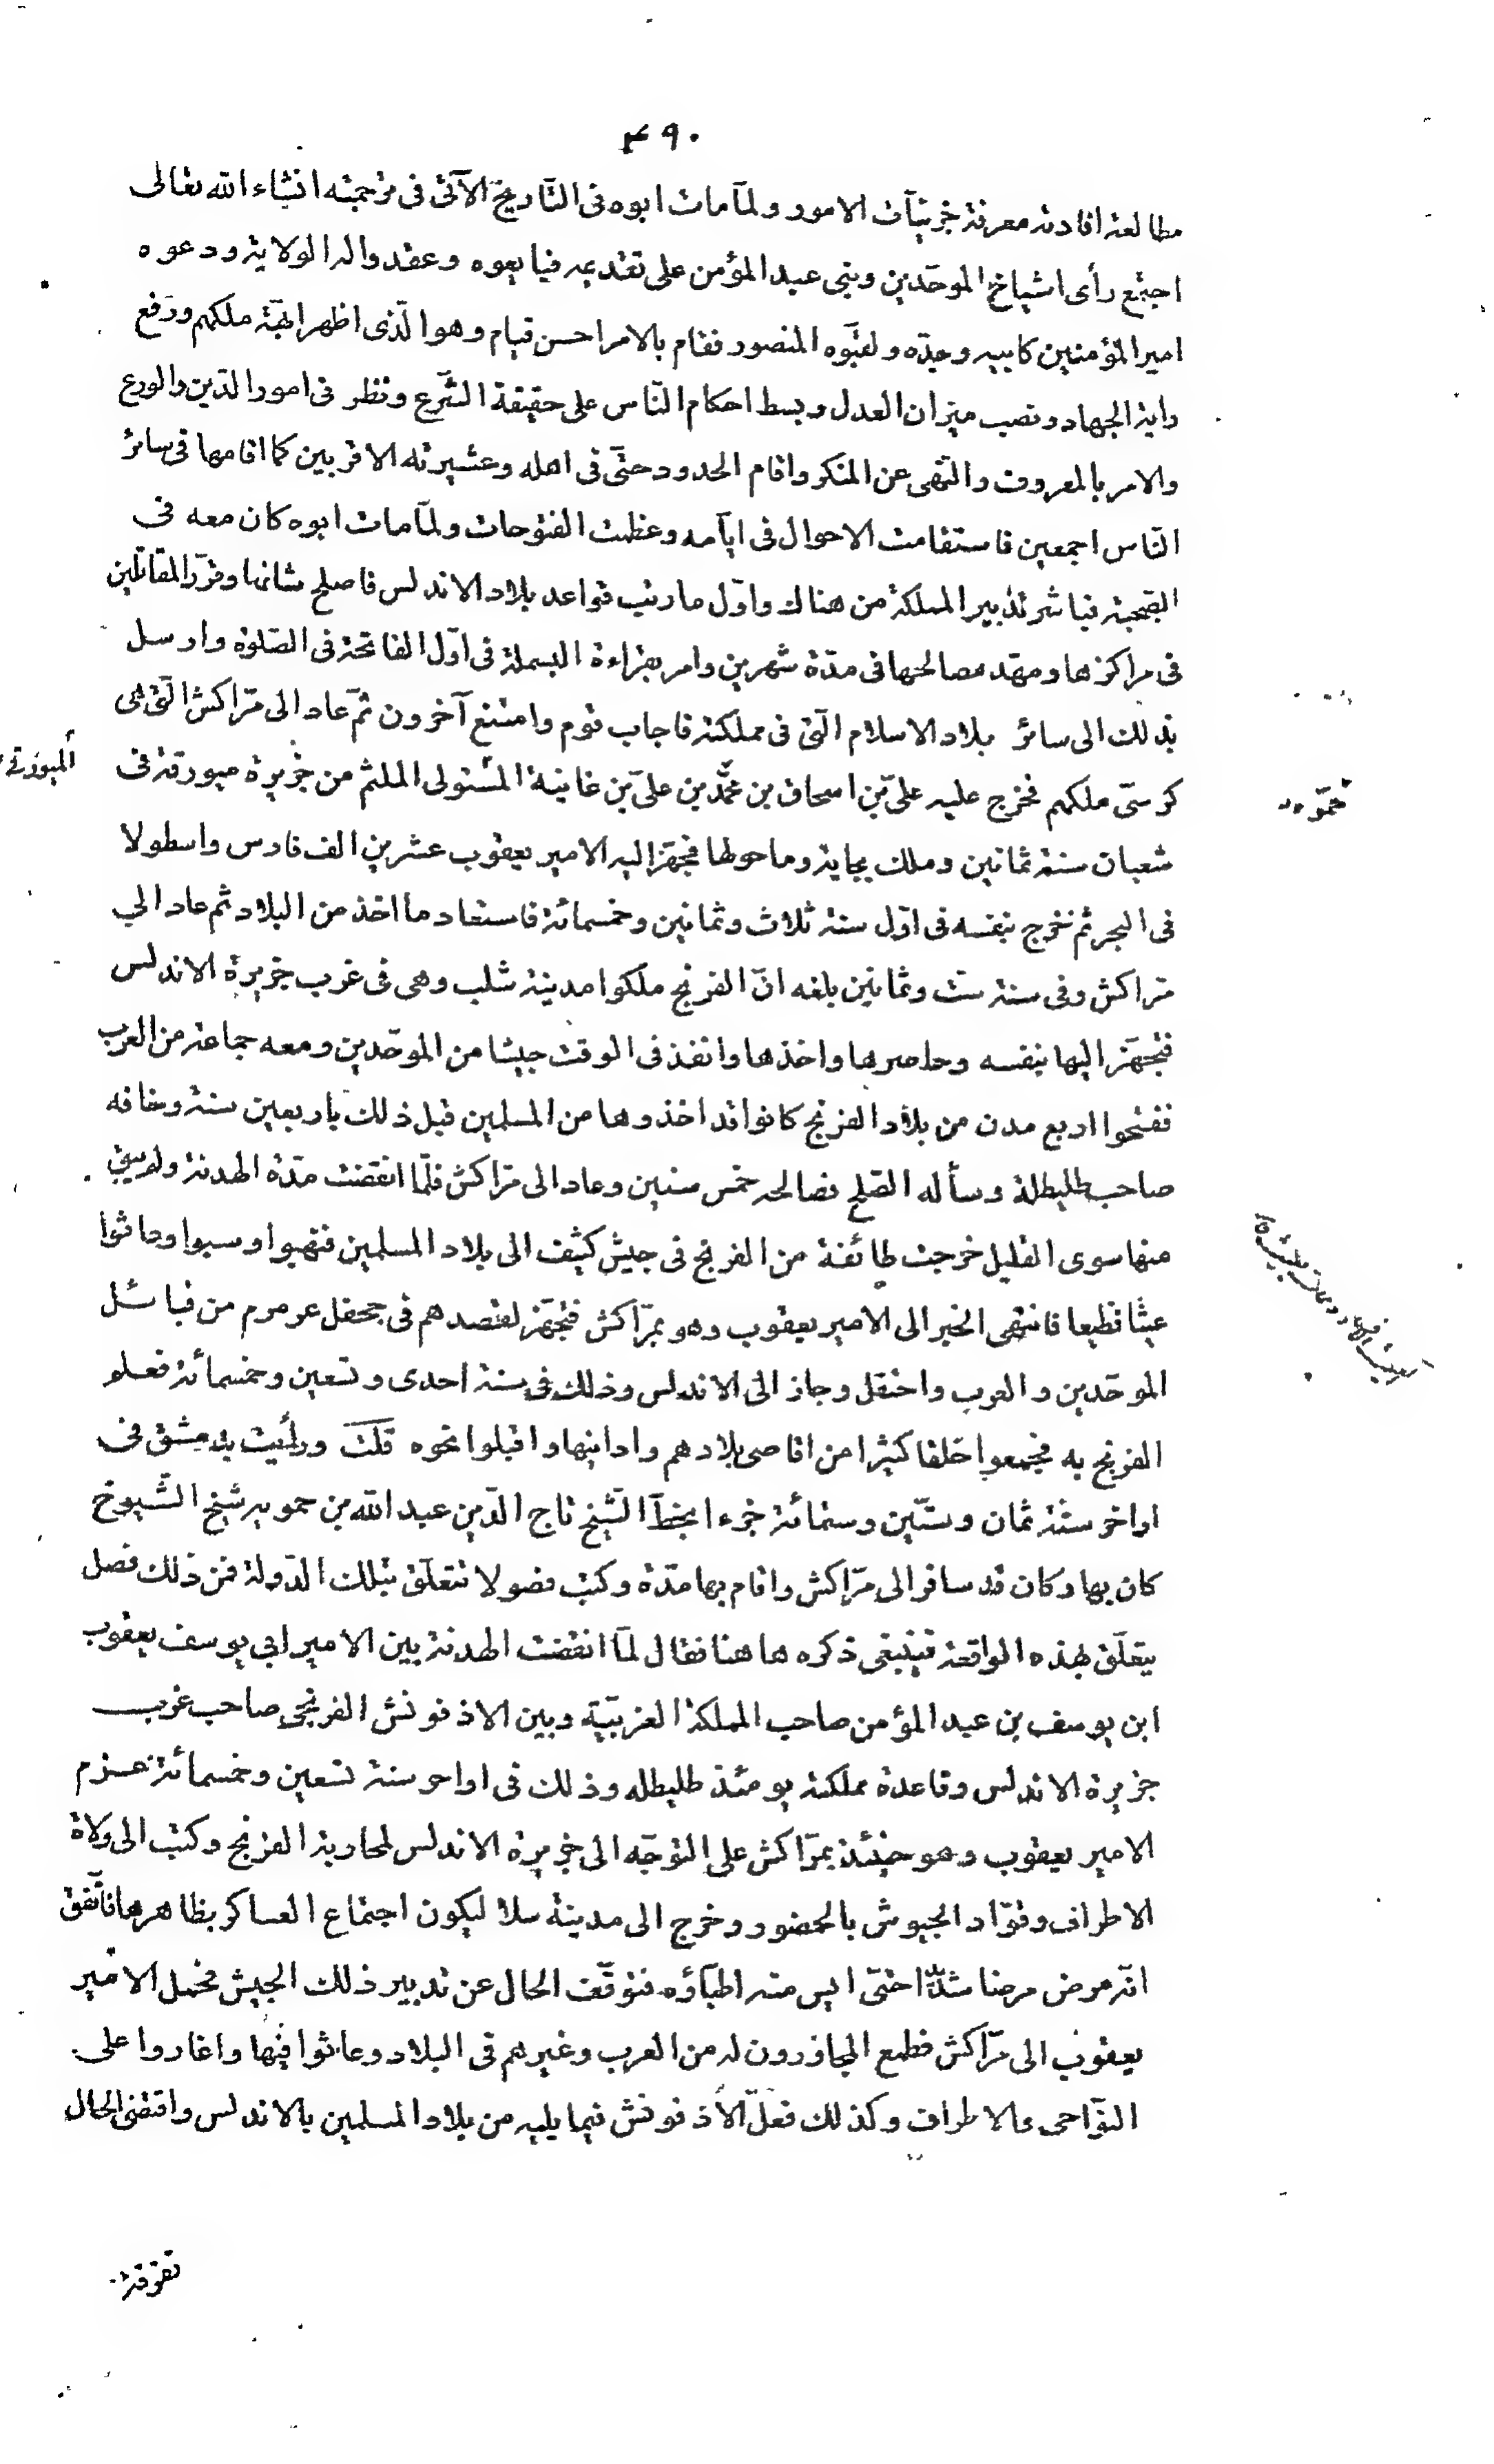 ٤٩٠
مطالعة افادته معرفة جزئيّات الامور ولمّا مات ابوه فى التّاريخ الآتى فى ترجمته انشاء الله تعالى
اجتمع رأى اشياخ الموحّدين وبنى عبد المؤمن على تقديمه فبايعوه وعقدوا له الولاية ودعوه
امير المؤمنين كابيه وجدّه ولقّبوه المنصور فقام بالامر احسن قيام وهو الّذى اظهر ابّهة ملكهم ورفع
راية الجهاد ونصب ميزان العدل وبسط احكام النّاس على حقيقة الشّرع ونظر فى امور الدّين والورع
والامر بالمعروف والنّهى عن المنكر واقام الحدود حتّى فى اهله وعشيرته الاقربين كما اقامها فى سائر
النّاس اجمعين فاستقامت الاحوال فى ايّامه وعظمت الفتوحات ولمّا مات ابوه كان معه فى
الصّحبة فباشر تدبير المملكة من هناك واوّل ما رتب قواعد بلاد الاندلس فاصلح شانها وقرّر المقاتلين
فى مراكزها ومهّد مصالحها فى مدّة شهرين وامر بقراءة البسملة فى اوّل الفاتحة فى الصّلوة وارسل
بذلك الى سائر بلاد الاسلام الّتى فى مملكته فاجاب قوم وامتنع آخرون ثمّ عاد الى مرّاكش الّتى هى
كرسىّ ملكهم فخرج عليه علىّ بن اسحاق بن محمّد بن علىّ بن غانية المستولى الملثم من جزيرة ميورقة فى
الميورقى
حمّوه
شعبان سنة ثمانين وملك بجاية وما حولها فجهّز اليه الامير يعقوب عشرين الف فارس واسطولا
فى البحر ثم خرج بنفسه فى اوّل سنة ثلاث وثمانين وخمسمائة فاستعاد ما اخذ من البلاد ثم عاد الى
مراكش وفى سنة ست وثمانين بلغه انّ الفرنج ملكوا مدينة شلب وهى فى غرب جزيرة الاندلس
فتجهّز اليها بنفسه وحاصرها واخذها وانفذ فى الوقت جيشا من الموحّدين ومعه جماعة من العرب
ففتحوا اربع مدن من بلاد الفرنج كانوا قد اخذوها من المسلمين قبل ذلك باربعين سنة وخافه
صاحب طليطلة وسأله الصّلح فصالحه خمس سنين وعاد الى مرّاكش فلمّا انقضت مدّة الهدنة ولم يبق
منها سوى القليل خرجت طائفة من الفرنج فى جيش كثيف الى بلاد المسلمين فنهبوا وسبوا وعاثوا
عيثا فظيعا فانتهى الخبر الى الامير يعقوب وهو بمرّاكش فتجهّز لقصدهم فى جحفل عرمرم من قبائل
الموحّدين والعرب واحتفل وجاز الى الاندلس وذلك فى سنة احدى وتسعين وخمسمائة فعلو
الفرنج به فجمعوا خلقا كثيرا من اقاصى بلادهم وادانيها واقبلوا نحوه قلت ورأيت بدمشق فى
اواخر سنة ثمان وستّين وستمائة جزءا بخطّ الشّيخ تاج الدّين عبد الله بن حمويه شيخ الشّيوخ
كان بها وكان قد سافر الى مرّاكش واقام بها مدّة وكتب فصولا تتعلّق بتلك الدّولة فمن ذلك فصل
يتعلّق بهذه الواقعة فينبغى ذكره هاهنا فقال لمّا انقضت الهدنة بين الامير ابى يوسف يعقوب
ابن يوسف بن عبد المؤمن صاحب المملكة الغربيّة وبين الاذفونش الفرنجى صاحب غرب
جزيرة الاندلس وقاعدة مملكته يومئذ طليطله وذلك فى اواخر سنة تسعين وخمسمائة عزم
الامير يعقوب وهو حينئذ بمرّاكش على التوجّه الى جزيرة الاندلس لمحاربة الفرنج وكتب الى ولاة
الاطراف وقوّاد الجيوش بالحضور وخرج الى مدينة سلا ليكون اجتماع العساكر بظاهرها فاتّفق
انّه مرض مرضا شديدا حتّى ايس منه اطبّاؤه فتوقّف الحال عن تدبير ذلك الجيش فحمل الامير
يعقوب الى مرّاكش فطمع المجاورون له من العرب وغيرهم فى البلاد وعاثوا فيها واغاروا على
النّواحى والاطراف وكذلك فعل الاذفونش فيما يليه من بلاد المسلمين بالاندلس واقتضى الحال
تفرقة